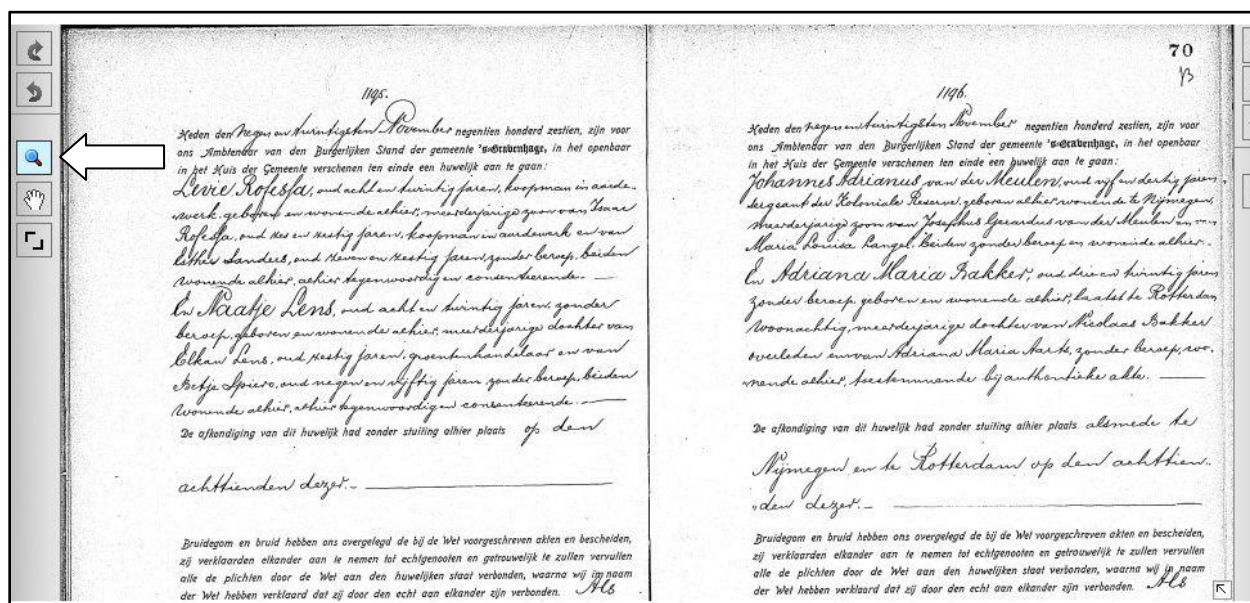 70
B
1195.
Heden den negen en twintigsten November negentien honderd zestien, zijn voor
ons Ambtenaar van den Burgerlijken Stand der gemeente 's-Gravenhage, in het openbaar
in het Huis der Gemeente verschenen ten einde een huwelijk aan te gaan:
Levie Rofessa, oud acht en twintig jaren, koopman in aarde-
werk, geboren en wonende alhier, meerderjarige zoon van Isaac
Rofessa, oud zes en zestig jaren, koopman in aardewerk en van
Esther Sanders, oud zeven en zestig jaren, zonder beroep, beiden
wonende alhier, alhier tegenwoordig en consenteerende.
En Naatje Lens, oud acht en twintig jaren, zonder
beroep, geboren en wonende alhier, meerderjarige dochter van
Elkan Lens, oud zestig jaren, groentenhandelaar en van
Betje Spiero, oud negen en vijftig jaren, zonder beroep, beiden
wonende alhier, alhier tegenwoordig en consenteerende.
De afkondiging van dit huwelijk had zonder stuiting alhier plaats op den
achttienden dezer.
Bruidegom en bruid hebben ons overgelegd de bij de Wet voorgeschreven akten en bescheiden,
zij verklaarden elkander aan te nemen tot echtgenooten en getrouwelijk te zullen vervullen
alle de plichten door de Wet aan den huwelijken staat verbonden, waarna wij in naam
der Wet hebben verklaard dat zij door den echt aan elkander zijn verbonden. Als
1196.
Heden den negen en twintigsten November negentien honderd zestien, zijn voor
ons Ambtenaar van den Burgerlijken Stand der gemeente 's-Gravenhage, in het openbaar
in het Huis der Gemeente verschenen ten einde een huwelijk aan te gaan:
Johannes Adrianus van der Meulen, oud vijf en dertig jaren,
sergeant der Koloniale Reserve, geboren alhier, wonende te Nijmegen,
meerderjarige zoon van Josephus Gerardus van der Meulen en van
Maria Louisa Langel, beiden zonder beroep en wonende alhier.
En Adriana Maria Bakker, oud drie en twintig jaren
zonder beroep, geboren en wonende alhier, laatst te Rotterdam
woonachtig, meerderjarige dochter van Nicolaas Bakker
overleden en van Adriana Maria Aarts, zonder beroep, wo-
nende alhier, toestemmende bij authentieke akte.
De afkondiging van dit huwelijk had zonder stuiting alhier plaats alsmede te
Nijmegen en te Rotterdam op den achttien-
den dezer.
Bruidegom en bruid hebben ons overgelegd de bij de Wet voorgeschreven akten en bescheiden,
zij verklaarden elkander aan te nemen tot echtgenooten en getrouwelijk te zullen vervullen
alle de plichten door de Wet aan den huwelijken staat verbonden, waarna wij in naam
der Wet hebben verklaard dat zij door den echt aan elkander zijn verbonden. Als